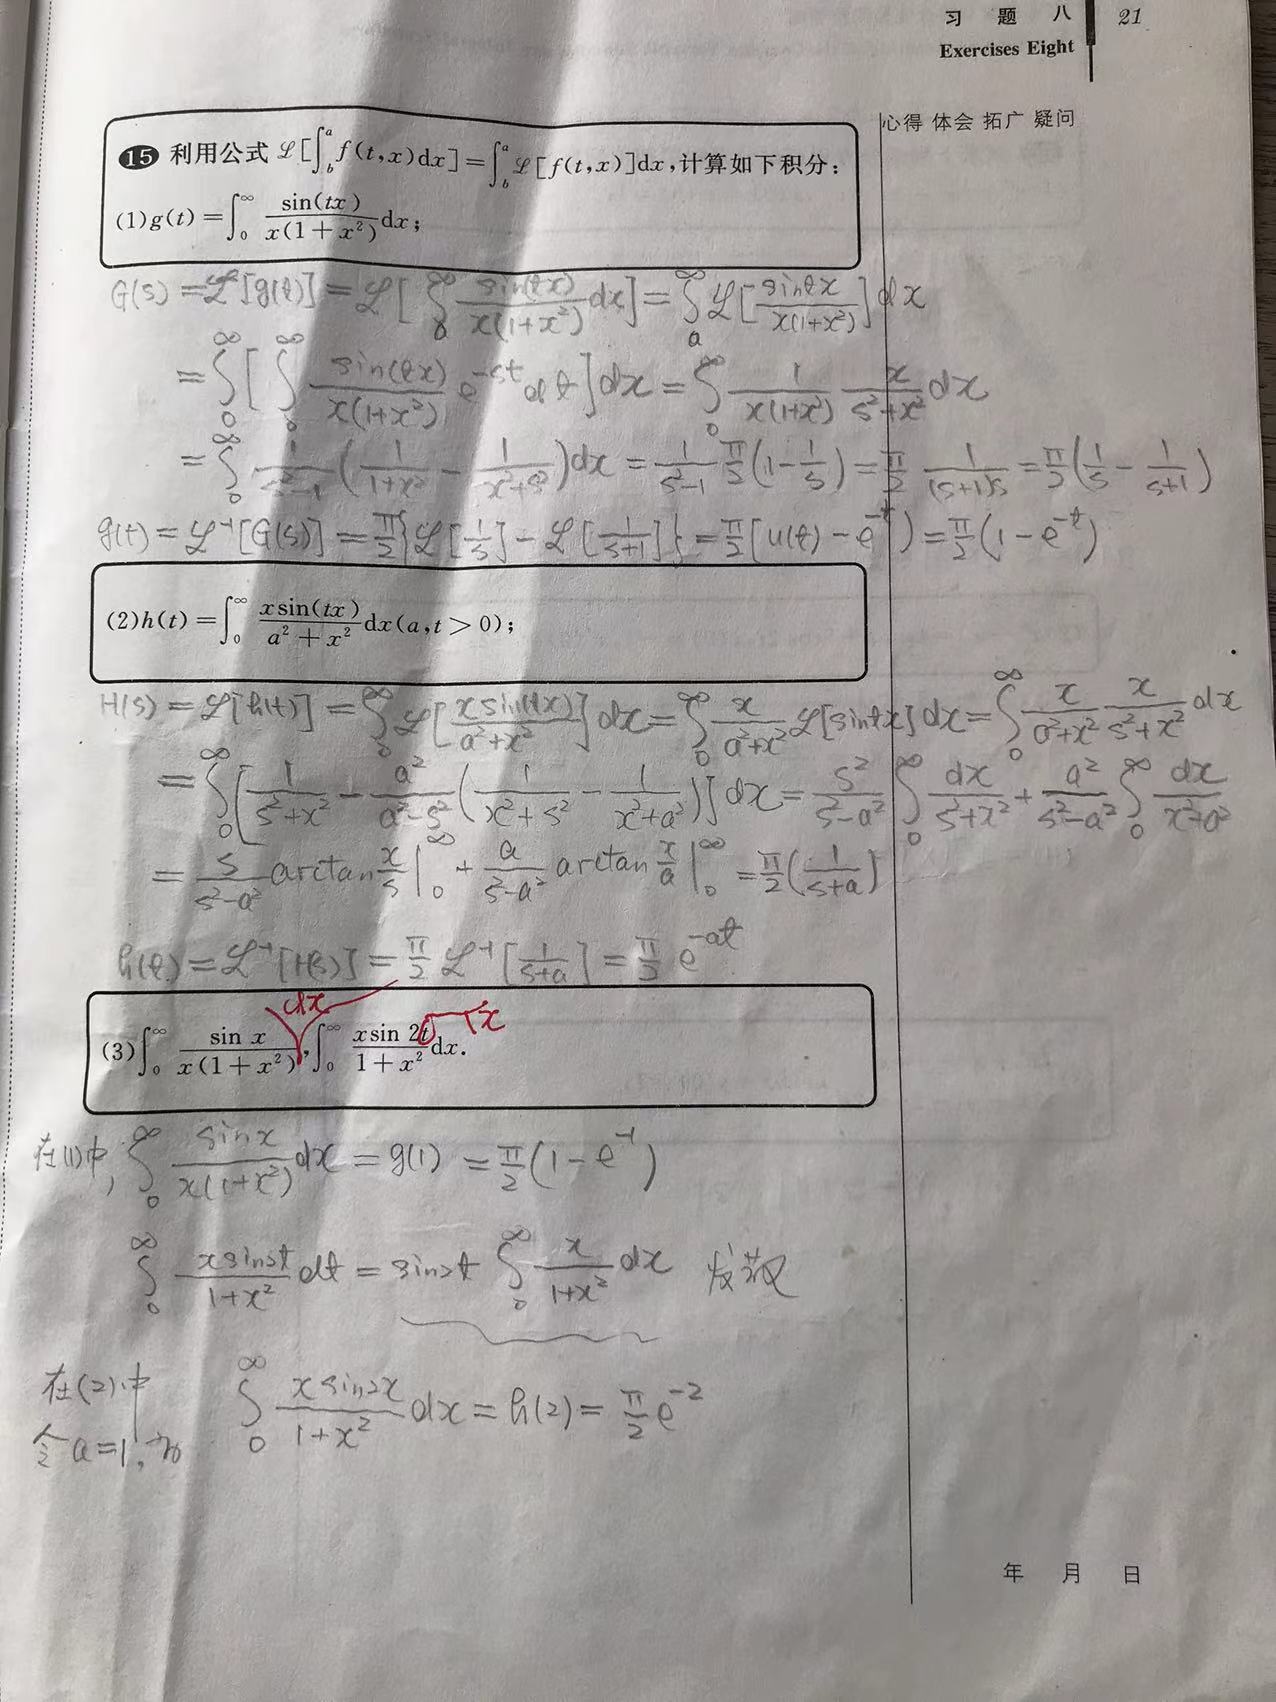 习 题 八 21
Exercises Eight
心得 体会 拓广 疑问
15 利用公式 ℒ[∫_b^a f(t,x)dx]=∫_b^a ℒ[f(t,x)]dx,计算如下积分:
(1)g(t)=∫_0^∞ sin(tx)/(x(1+x²)) dx;
G(s)=ℒ[g(t)]=ℒ[∫_0^∞ sin(tx)/(x(1+x²)) dx]=∫_a^∞ ℒ[sintx/(x(1+x²))]dx
=∫_0^∞[∫_0^∞ sin(tx)/(x(1+x²)) e^{-st}dt]dx=∫_0^∞ 1/(x(1+x²)) x/(s²+x²) dx
=∫_0^∞ 1/(s²-1) (1/(1+x²) - 1/(x²+s²))dx=1/(s²-1) π/2(1-1/s)=π/2 1/((s+1)s)=π/2(1/s-1/(s+1))
g(t)=ℒ⁻¹[G(s)]=π/2{ℒ[1/s]-ℒ[1/(s+1)]}=π/2[u(t)-e^{-t})=π/2(1-e^{-t})
(2)h(t)=∫_0^∞ xsin(tx)/(a²+x²) dx(a,t>0);
H(s)=ℒ[h(t)]=∫_0^∞ ℒ[xsin(tx)/(a²+x²)]dx=∫_0^∞ x/(a²+x²) ℒ[sintx]dx=∫_0^∞ x/(a²+x²) x/(s²+x²) dx
=∫_0^∞[1/(s²+x²) - a²/(a²-s²) (1/(x²+s²) - 1/(x²+a²))]dx=s²/(s²-a²) ∫_0^∞ dx/(s²+x²) + a²/(s²-a²) ∫_0^∞ dx/(x²+a²)
=s/(s²-a²) arctan x/s |_0^∞ + a/(s²-a²) arctan x/a |_0^∞ =π/2(1/(s+a))
h(t)=ℒ⁻¹[H(s)]=π/2 ℒ⁻¹[1/(s+a)]=π/2 e^{-at}
dx x
(3)∫_0^∞ sin x/(x(1+x²)),∫_0^∞ xsin 2t/(1+x²) dx.
在(1)中,∫_0^∞ sinx/(x(1+x²)) dx=g(1)=π/2(1-e^{-1})
∫_0^∞ xsin2t/(1+x²) dt=sin2t ∫_0^∞ x/(1+x²) dx 发散
在(2)中 ∫_0^∞ xsin2x/(1+x²) dx=h(2)=π/2 e^{-2}
令a=1,
年 月 日